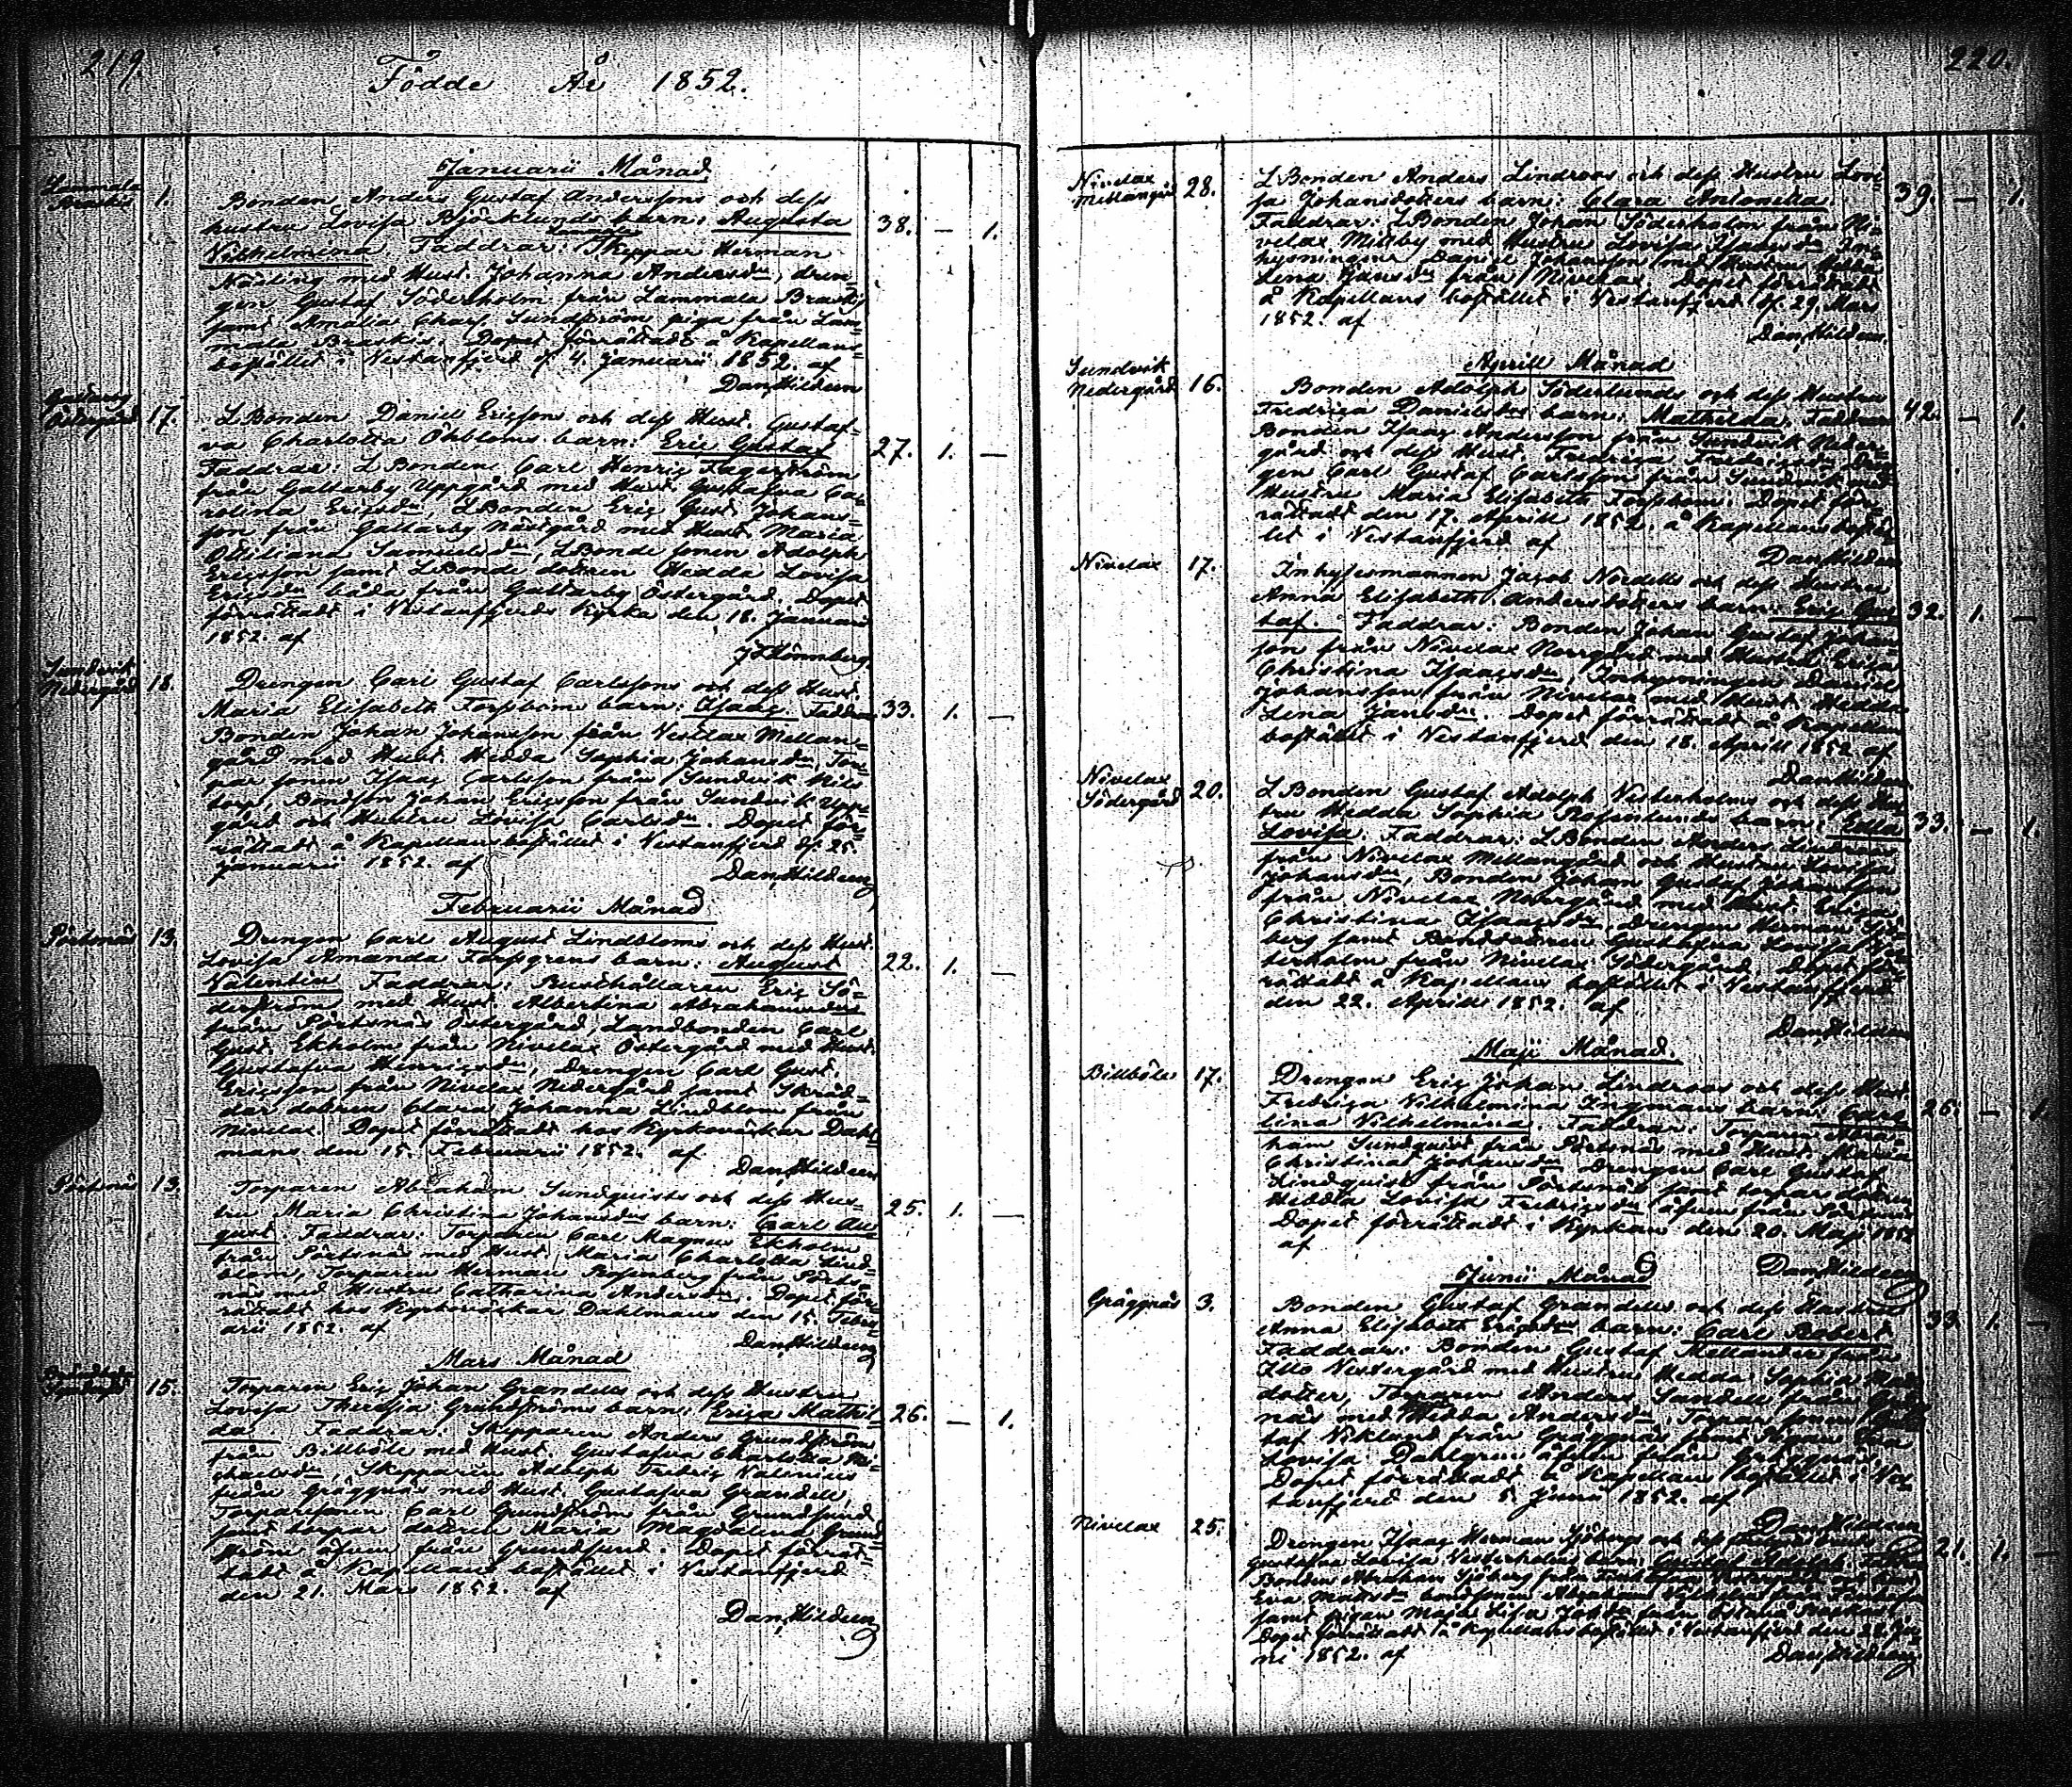 219.
Födde År 1852.
Januarii Månad
Lammala
Braskis 1.
Bonden Anders Gustaf Anderssons och dess
hustru Lovisa Björklunds barn: Augusta 38. — 1.
Wilhelmina Faddrar: Skeppar Herman
Näsling med Hust. Johanna Andersdr, dren-
gen Gustaf Söderholm från Lammala Braskis
samt Amalia Charl. Sundström piga från Lam-
mala Braskis. Dopet förrättadt å Kapellans-
bostället i Vestanfjerd d. 4. Januarii 1852. af
Dan. Hildeen
Östergård 17.
L.Bonden Daniel Ericssons och dess Hust. Gustaf-
va Charlotta Öhbloms barn: Eric Gustaf 27. 1. —
Faddrar: L.Bonden Carl Henric Fagerström
från Galtarby Uppgård med Hust. Gustafva Ca-
rolina Ericsdr, L.Bonden Eric Gust. Johans-
son från Galtarby Nästgård med Hust. Maria
Ottiliana Samuelsdr, L.Bonde sonen Adolph
Ericsson samt L.Bonde dottren Hedda Lovisa
Ericsdr båda från Galtarby Östergård. Dopet
förrättadt i Vestanfjerds Kyrka den 18. Januari
1852. af
Sundvik
Nedergård 18.
Drengen Carl Gustaf Carlssons och dess Hust.
Maria Elisabeth Forsboms barn: Isaac. Faddrar: 33. 1. —
Bonden Johan Johansson från Nivelax Mellan-
gård med Hust. Hedda Sophia Johansdr, Tor-
par sonen Isaac Carlsson från Sundvik Nils
torp, Bondson Johan Ericsson från Sundvik Upp-
gård och Hustru Lovisa Carlsdr. Dopet för-
rättadt å Kapellansbostället i Vestanfjerd d. 25
Januarii 1852. af
Dan. Hildeen
Februarii Månad
Pörtsnäs 13.
Drengen Carl August Lindbloms och dess Hust.
Lovisa Amanda Forsgrens barn: August 22. 1. —
Valentin Faddrar: Rusthållaren Eric Sö-
derström med Hust. Albertina Abrahamsdr
från Pörtsnäs Östergård, Landbonden Carl
Gust. Ekholm från Nivelax Östergård med Hust.
Gustafva Henricsdr, Drengen Carl Gust.
Ericsson från Nivelax Nedergård samt Skräd-
dar dottren Clara Johanna Lindblom från
Nivelax. Dopet förrättadt hos Kyrkoväktar Dahl-
mans den 15. Februarii 1852. af
Dan. Hildeen
Pörtsnäs 13.
Torparen Abraham Sundquists och dess Hus-
tru Maria Christina Johansdrs barn: Carl Au- 25. 1. —
gust. Faddrar: Torparen Carl Magnus Ekholm
från Pörtsnäs med Hust. Maria Charlotta Lind-
blom, Torparen Herman Rosenberg från Pörts-
näs med Hustru Catharina Andersdr. Dopet för-
rättadt hos Kyrkoväktar Dahlmans den 15. Febru-
arii 1852. af
Dan. Hildeen
Mars Månad
15.
Torparen Eric Johan Grandells och dess Hustru
Lovisa Theresa Grundströms barn: Erica Mathil- 26. — 1.
da. Faddrar: Skepparen Anders Grundström
från Billböle med Hust. Gustafva Charlotta Mi-
chaelsdr, Skepparen Adolph Fredric Valenius
från Gräggnäs med Hust. Gustafva Grandell,
Torparsonen Carl Grundström från Grundsund
samt torpar dottren Maria Magdalena Grund-
ström äfven från Grundsund. Dopet förrät-
tadt å Kapellans bostället i Vestanfjerd
den 21. Mars 1852. af
Dan. Hildeen
220.
Nivelax
Mellangård 28.
L.Bonden Anders Lindroos och dess Hustru Lovi-
sa Johansdotters barn: Clara Antonetta 39. — 1.
Faddrar: L.Bonden Johan Söderholm från Ni-
velax Millby med Hustru Lovisa Isaacsdr, In-
hysningen Daniel Johansson med Hustru Hedda
Lena Jansdr från Nivelax. Dopet förrättadt
å Kapellans bostället i Vestanfjerd d. 29. Mars
1852. af
Dan. Hildeen
Aprill Månad
Sundvik
Nedergård 16.
Bonden Adolph Söderlunds och dess Hustru
Fredrica Danielsdrs barn: Mathilda. Faddrar: 42. — 1.
Bonden Isaac Andersson från Sundvik Neder-
gård och dess Hust. Fredrica Fredricsdr, Dren-
gen Carl Gustaf Carlsson från Sundvik med
Hustru Maria Elisabeth Forsbom. Dopet för-
rättadt den 17. Aprill 1852. å Kapellans bostäl-
let i Vestanfjerd af
Dan. Hildeen
Nivelax 17.
Inhysesmannen Jacob Nordells och dess Hustru
Anna Elisabeth Andersdotters barn: Eric Gus- 32. 1. —
taf. Faddrar: Bonden Johan Gustaf Johans-
son från Nivelax Norrgård med Hustru Erica
Christina Isaacsdr, Inhysningen Daniel
Johansson från Nivelax med Hust. Hedda
Lena Jansdr. Dopet förrättadt å Kapellans
bostället i Vestanfjerd den 18. Aprill 1852. af
Dan. Hildeen
Nivelax
Södergård 20.
L.Bonden Gustaf Adolph Vesterholms och dess Hus-
tru Hedda Sophia Rosenlunds barn: Edla 33. — 1.
Lovisa. Faddrar: L.Bonden Anders Lindroos
från Nivelax Mellangård och Hustru Lovisa
Johansdr, Bonden Johan Gustaf Johansson
från Nivelax Norrgård med Hust. Erica
Christina Isaacsdr, Drengen Herman Sjö-
berg samt Bondedottren Gustafva Lovisa Ves-
terholm från Nivelax Södergård. Dopet för-
rättadt å Kapellans bostället i Vestanfjerd
den 22. Aprill 1852. af
Dan. Hildeen
Maji Månad.
Billböle 17.
Drengen Eric Johan Lindroos och dess Hust.
Fredrica Wilhelmina Ingmans barn: Caro- 26. — 1.
lina Wilhelmina Faddrar: Torparen Abra-
ham Sundquist från Pörtsnäs med Hust. Maria
Christina Johansdr, Drengen Carl Gustaf
Lindquist från Pörtsnäs samt torpars dottren
Hedda Lovisa Fredricsdr äfven från Pörtsnäs
Dopet förrättadt i Kyrkan den 20. Maji 1852
af
Dan. Hildeen
Junii Månad
Gräggnäs 3.
Bonden Gustaf Grandells och dess Hustrus
Anna Elisabeth Ericsdrs barn: Carl Robert 33. 1. —
Faddrar: Bonden Gustaf Mellander från
Illo Vestergård med Hustru Hedda Sophia
dotter, Torparen Anders Sandell från
näs med Hedda Andersdr, Torpar sonen Gus-
taf Viklund från Gräggnäs samt
Lovisa Dahlgren äfven från Gräggnäs.
Dopet förrättadt å Kapellans bostället i Ves-
tanfjerd den 5. Junii 1852. af
Dan. Hildeen
Nivelax 25.
Drengen Isaac Herman Sjöbergs och dess
Gustafva Lovisa Vesterholms barn: 21. 1. —
Bonden Abraham Sjöberg från
Eva
samt pigan Maja Lisa
Dopet förrättadt å Kapellans bostället i Vestanfjerd den Ju-
ni 1852. af
Dan. Hildeen